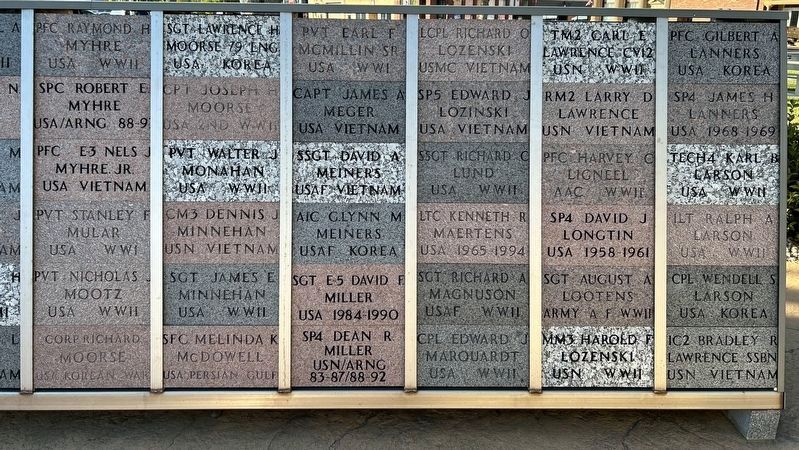 PFC RAYMOND H
MYHRE
USA WWII
SPC ROBERT E
MYHRE
USA/ARNG 88-9
PFC E3 NELS J
MYHRE JR.
USA VIETNAM
PVT STANLEY F
MULAR
USA WWI
PVT NICHOLAS J
MOOTZ
USA WWII
CORP RICHARD
MOORSE
USA KOREAN WAR
SGT LAWRENCE H
MOORSE 79 ENG
USA KOREA
CPT JOSEPH H
MOORSE
USA 2ND WWII
PVT WALTER J
MONAHAN
USA WWII
CM3 DENNIS J
MINNEHAN
USN VIETNAM
SGT JAMES E
MINNEHAN
USA WWII
SFC MELINDA K
McDOWELL
USA PERSIAN GULF
PVT EARL F
MCMILLIN SR
USA WWI
CAPT JAMES A
MEGER
USA VIETNAM
SSGT DAVID A
MEINERS
USAF VIETNAM
AIC GLYNN M
MEINERS
USAF KOREA
SGT E-5 DAVID F
MILLER
USA 1984-1990
SP4 DEAN R
MILLER
USN/ARNG
83-87/88-92
LCPL RICHARD O
LOZENSKI
USMC VIETNAM
SP5 EDWARD J
LOZINSKI
USA VIETNAM
SSGT RICHARD C
LUND
USA WWII
LTC KENNETH R
MAERTENS
USA 1965-1994
SGT RICHARD A
MAGNUSON
USAF WWII
CPL EDWARD J
MARQUARDT
USA WWII
TM2 CARL E
LAWRENCE CV12
USN WWII
RM2 LARRY D
LAWRENCE
USN VIETNAM
PFC HARVEY C
LIGNEEL
AAC WWII
SP4 DAVID J
LONGTIN
USA 1958-1961
SGT AUGUST A
LOOTENS
ARMY A F WWII
MM3 HAROLD F
LOZENSKI
USN WWII
PFC GILBERT A
LANNERS
USA KOREA
SP4 JAMES H
LANNERS
USA 1968-1969
TECH4 KARL B
LARSON
USA WWII
1LT RALPH A
LARSON
USA WWII
CPL WENDELL S
LARSON
USA KOREA
IC2 BRADLEY R
LAWRENCE SSBN
USN VIETNAM